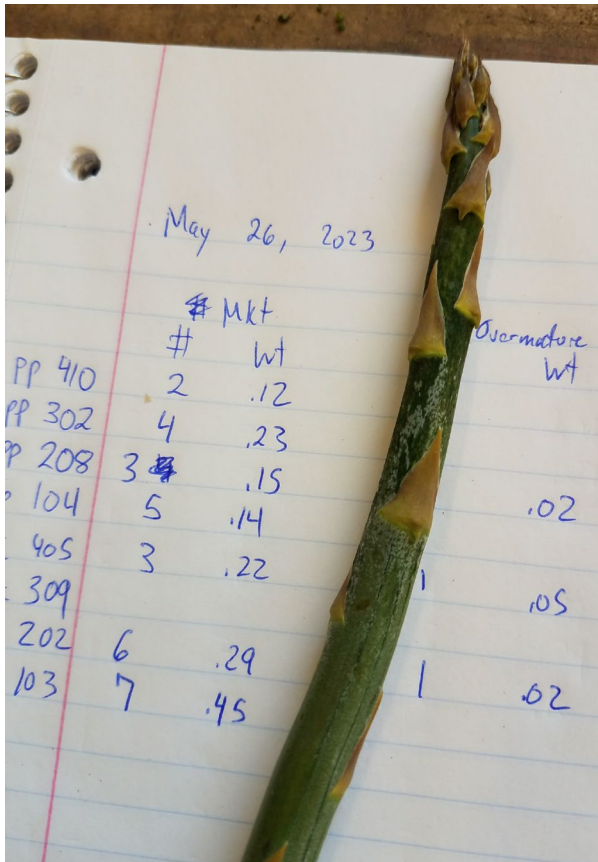 May 26, 2023
# Mkt
# Wt Overmature Wt
PP 410 2 .12
PP 302 4 .23
PP 208 3 .15
104 5 .14 .02
405 3 .22
309 1 .05
202 6 .29
103 7 .45 1 .02